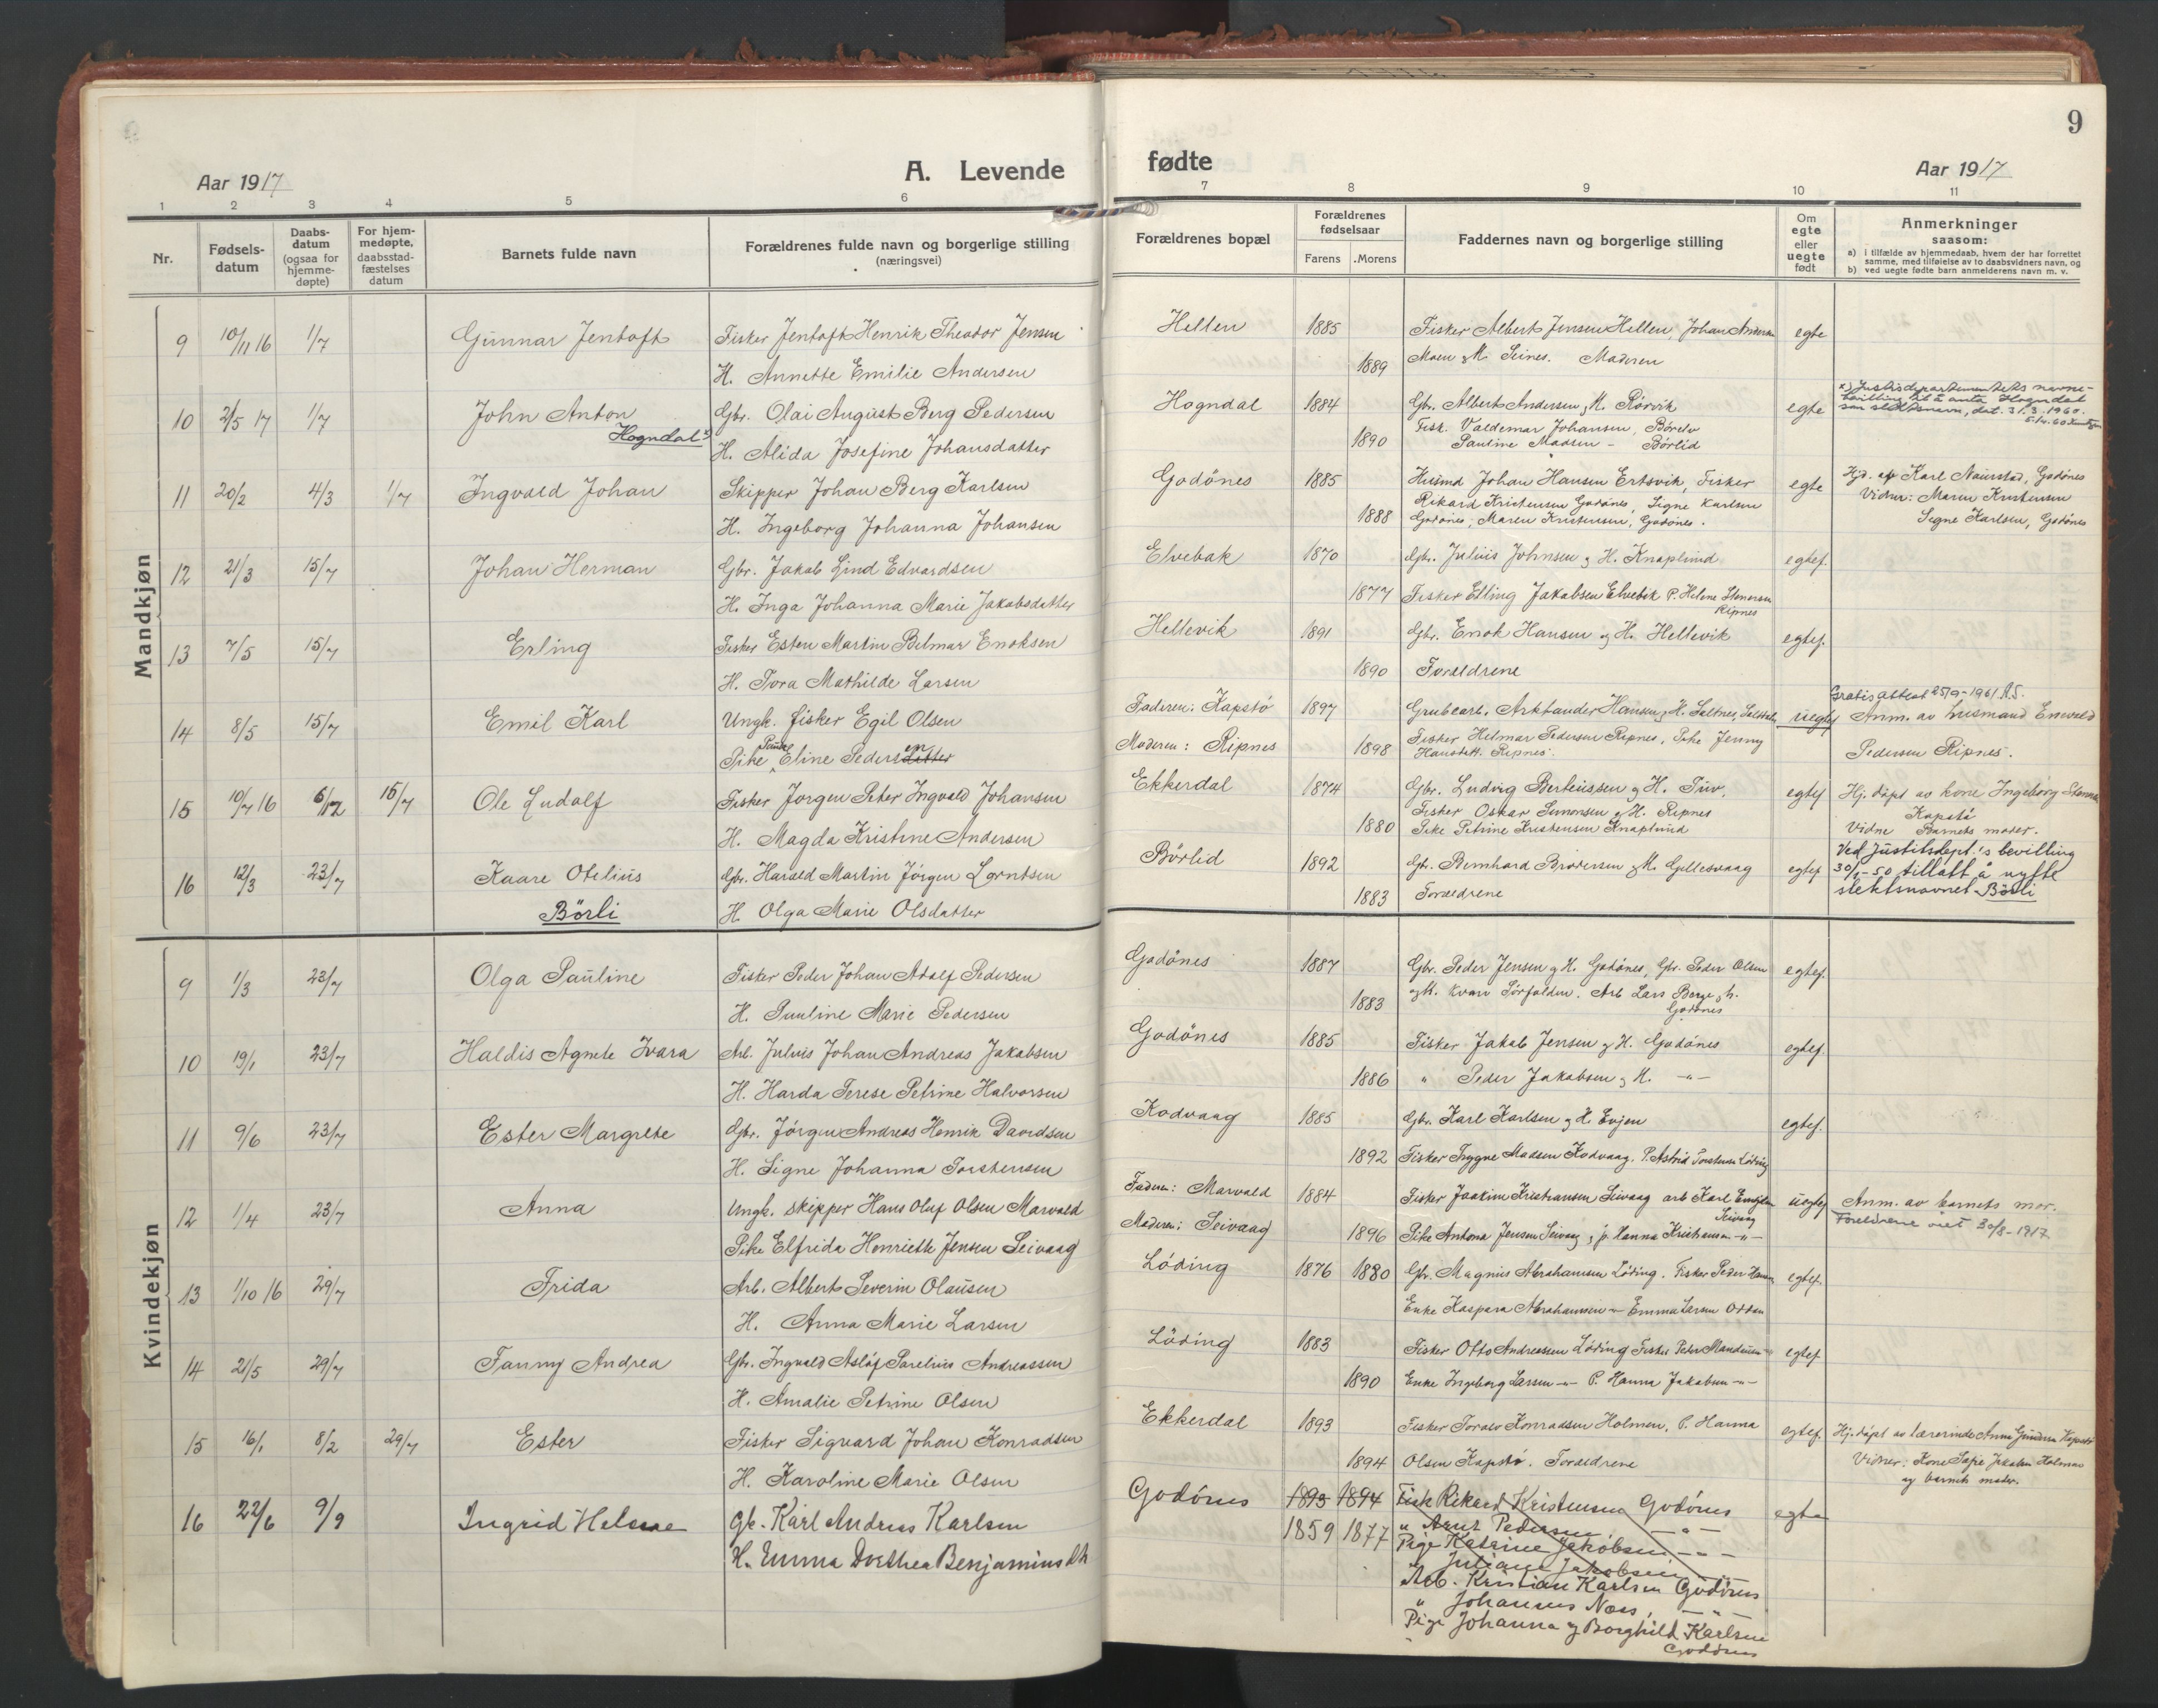 9
Aar 1917
A. Levende
fødte
Aar 1917
1 2 3 4 5 6 7 8 9 10 11
Nr.
Fødsels-
datum
Daabs-
datum
(ogsaa for
hjemme-
døpte)
For hjem-
medøpte,
daabsstad-
fæstelses
datum
Barnets fulde navn
Forældrenes fulde navn og borgerlige stilling
(næringsvei)
Forældrenes bopæl
Forældrenes
fødselsaar
Farens
Morens
Faddernes navn og borgerlige stilling
Om
egte
eller
uegte
født
Anmerkninger
saasom:
a) i tilfælde av hjemmedaab, hvem der har forrettet
samme, med tilføielse av to daabsvidners navn, og
b) ved uegte fødte barn anmelderens navn m. v.
Mandkjøn
9 10/11 16 1/7 Gunnar Jentoft Fisker Jentoft Henrik Theodor Jensen Hellen 1885 Fisker Albert Jensen Hellen, Johan Andersen egte
H. Annette Emilie Andersen 1889 Moen & M. Seines. Moderen
10 2/5 17 1/7 John Anton Gbr. Olai August Berg Pedersen Hogndal 1884 Gbr. Albert Andersen & M. Rörvik egte x) Justisdepartementets navne-
bevilling til å anta Hogndal
som slektsnavn, dat. 31.3.1960.
Hogndal x) H. Alida Josefine Johansdatter 1890 Fisk. Valdemar Johansen, Börelv
Pauline Madsen - Börlid
11 20/2 4/3 1/7 Ingvald Johan Skipper Johan Berg Karlsen Godönes 1885 Husmd Johan Hansen Ertsvik, Fisker egte Hjd. af Karl Naurstad, Godönes
H. Ingeborg Johanna Johansen 1888 Rikard Kristensen Godönes, Signe Karlsen Vidner: Maren Kristensen
Godönes, Maren Kristensen, Godönes. Signe Karlsen, Godönes
12 21/3 15/7 Johan Herman Gbr. Jakob Lind Edvardsen Elvebak 1870 Gbr. Julius Johnsen & H. Knaplund egtef.
H. Inga Johanna Marie Jakobsdatter 1877 Fisker Elling Jakobsen Elvebak P. Helene Stenersen
Ripnes
13 7/5 15/7 Erling Fisker Esten Martin Bilmar Enoksen Hellevik 1891 Gbr. Enok Hansen og H. Hellevik egtef.
H. Tora Mathilde Larsen 1890 Foreldrene
Gratis attest 25/9-1961 R.S.
14 8/5 15/7 Emil Karl Ungk. fisker Egil Olsen Faderen: Kapstö 1897 Grubearb. Arktander Hansen & H. Saltnes, uegtef Anm. av husmand Enevald
Pike Eline Pedersdatter en Moderen: Ripnes 1898 Fisker Hilmar Pedersen Ripnes, Pike Jenny Pedersen Ripnes.
Ripnes.
15 10/7 16 6/12 15/7 Ole Ludolf Fisker Jörgen Peter Ingvald Johansen Ekkerdal 1874 Gbr. Ludvig Berteussen & H. Tuv. egtef Hj. döpt av kone Ingeborg
Kapstö
H. Magda Kristine Andersen 1880 Fisker Oskar Simonsen & H. Ripnes
Pike Petrine Kristensen Knaplund Vidne Barnets moder.
16 12/3 23/7 Kaare Otelius Gbr. Harald Martin Jörgen Lorntsen Börlid 1892 Gbr. Bernhard Brodersen & M. Gillesvaag egtef Ved Justitsdept.'s bevilling
30/1-50 tillatt å nytte
slektsnavnet Börli
Börli H. Olga Marie Olsdatter 1883 Foreldrene
Kvindekjøn
9 1/3 23/7 Olga Pauline Fisker Peder Johan Adolf Pedersen Godönes 1887 Gbr. Peder Jensen & H. Godönes, Gbr. Peder Olsen egtef.
H. Pauline Marie Pedersen 1883 og H. Kvarv Sörfolden. Arb Lars Berge & h.
Godönes
10 19/1 23/7 Haldis Agnete Ivara Arb. Julius Johan Andreas Jakobsen Godönes 1885 Fisker Jakob Jensen & H. Godönes egtef.
H. Harda Terese Petrine Halvorsen 1886 " Peder Jakobsen & H. -"-
11 9/6 23/7 Ester Margrete Gbr. Jörgen Andreas Henrik Davidsen Kodvaag 1885 Gbr. Karl Karlsen & H. Evjen egtef.
H. Signe Johanna Torstensen 1892 Fisker Trygve Madsen Kodvaag. P. Astrid Torstensen Löding
12 1/4 23/7 Anna Ungk. skipper Hans Oluf Olsen Marvold Faderen: Marvold 1884 Fisker Joakim Kristiansen Seivaag arb Karl uegtef Anm. av barnets mor.
Seivaag
Pike Elfrida Henriette Jensen Seivaag Moderen: Seivaag 1896 Pike Antona Jensen Seivaag, p. Hanna Kristiansen -"- Foreldrene viet 30/8-1917
13 1/10 16 29/7 Frida Arb. Albert Severin Olausen Löding 1876 1880 Gbr. Magnus Abrahamsen Löding. Fisker Peder Hansen egtef.
H. Anna Marie Larsen Enke Kaspara Abrahamsen -"- Emma Larsen Odden
14 21/5 29/7 Fanny Andrea Gbr. Ingvald Aslöf Parelius Andreassen Löding 1883 Fisker Otto Andreassen Löding Fisker Peder -"- egtef
H. Amalie Petrine Olsen 1890 Enke Ingeborg Larsen -"- P. Hanna Jakobsen -"-
15 16/1 8/2 29/7 Ester Fisker Sigvard Johan Konradsen Ekkerdal 1893 Fisker Toralv Konradsen Holmen, P. Hanna egtef. Hj. döpt av lærerinde Anna Kapstö
H. Karoline Marie Olsen 1894 Olsen Kapstö. Foreldrene Vidner: Kone Jakobsen Holmen
og barnets moder.
16 22/6 9/9 Ingrid Helene Gb. Karl Andreas Karlsen Godönes 1893 1894 Fisk Rikard Kristensen Godönes egte
H. Emma Dorthea Benjaminsdtr 1859 1877 " Arnt Pedersen, -"-
Pige Katrine Jakobsen -"-
" Juliane Jakobsen -"-
Arb. Kristian Karlsen Godönes
" Johannes Næss, -"-
Pige Johanna & Borghild Karlsen
Godönes